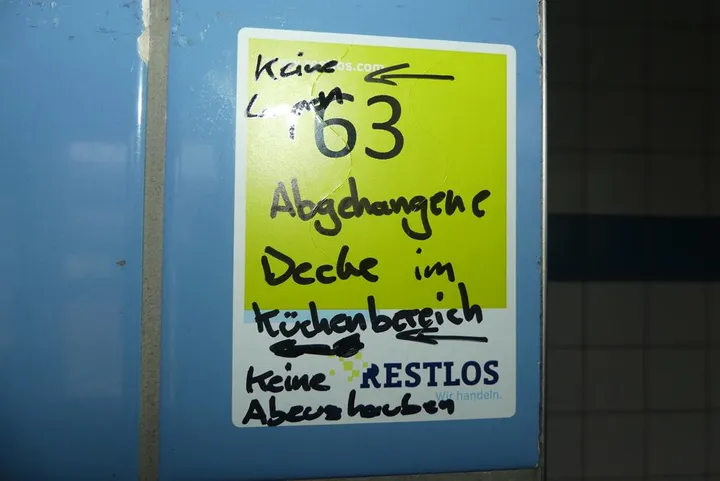 Keine
los.com
Lampen
63
Abgehangene
Decke im
Küchenbereich
Keine RESTLOS
Wir handeln.